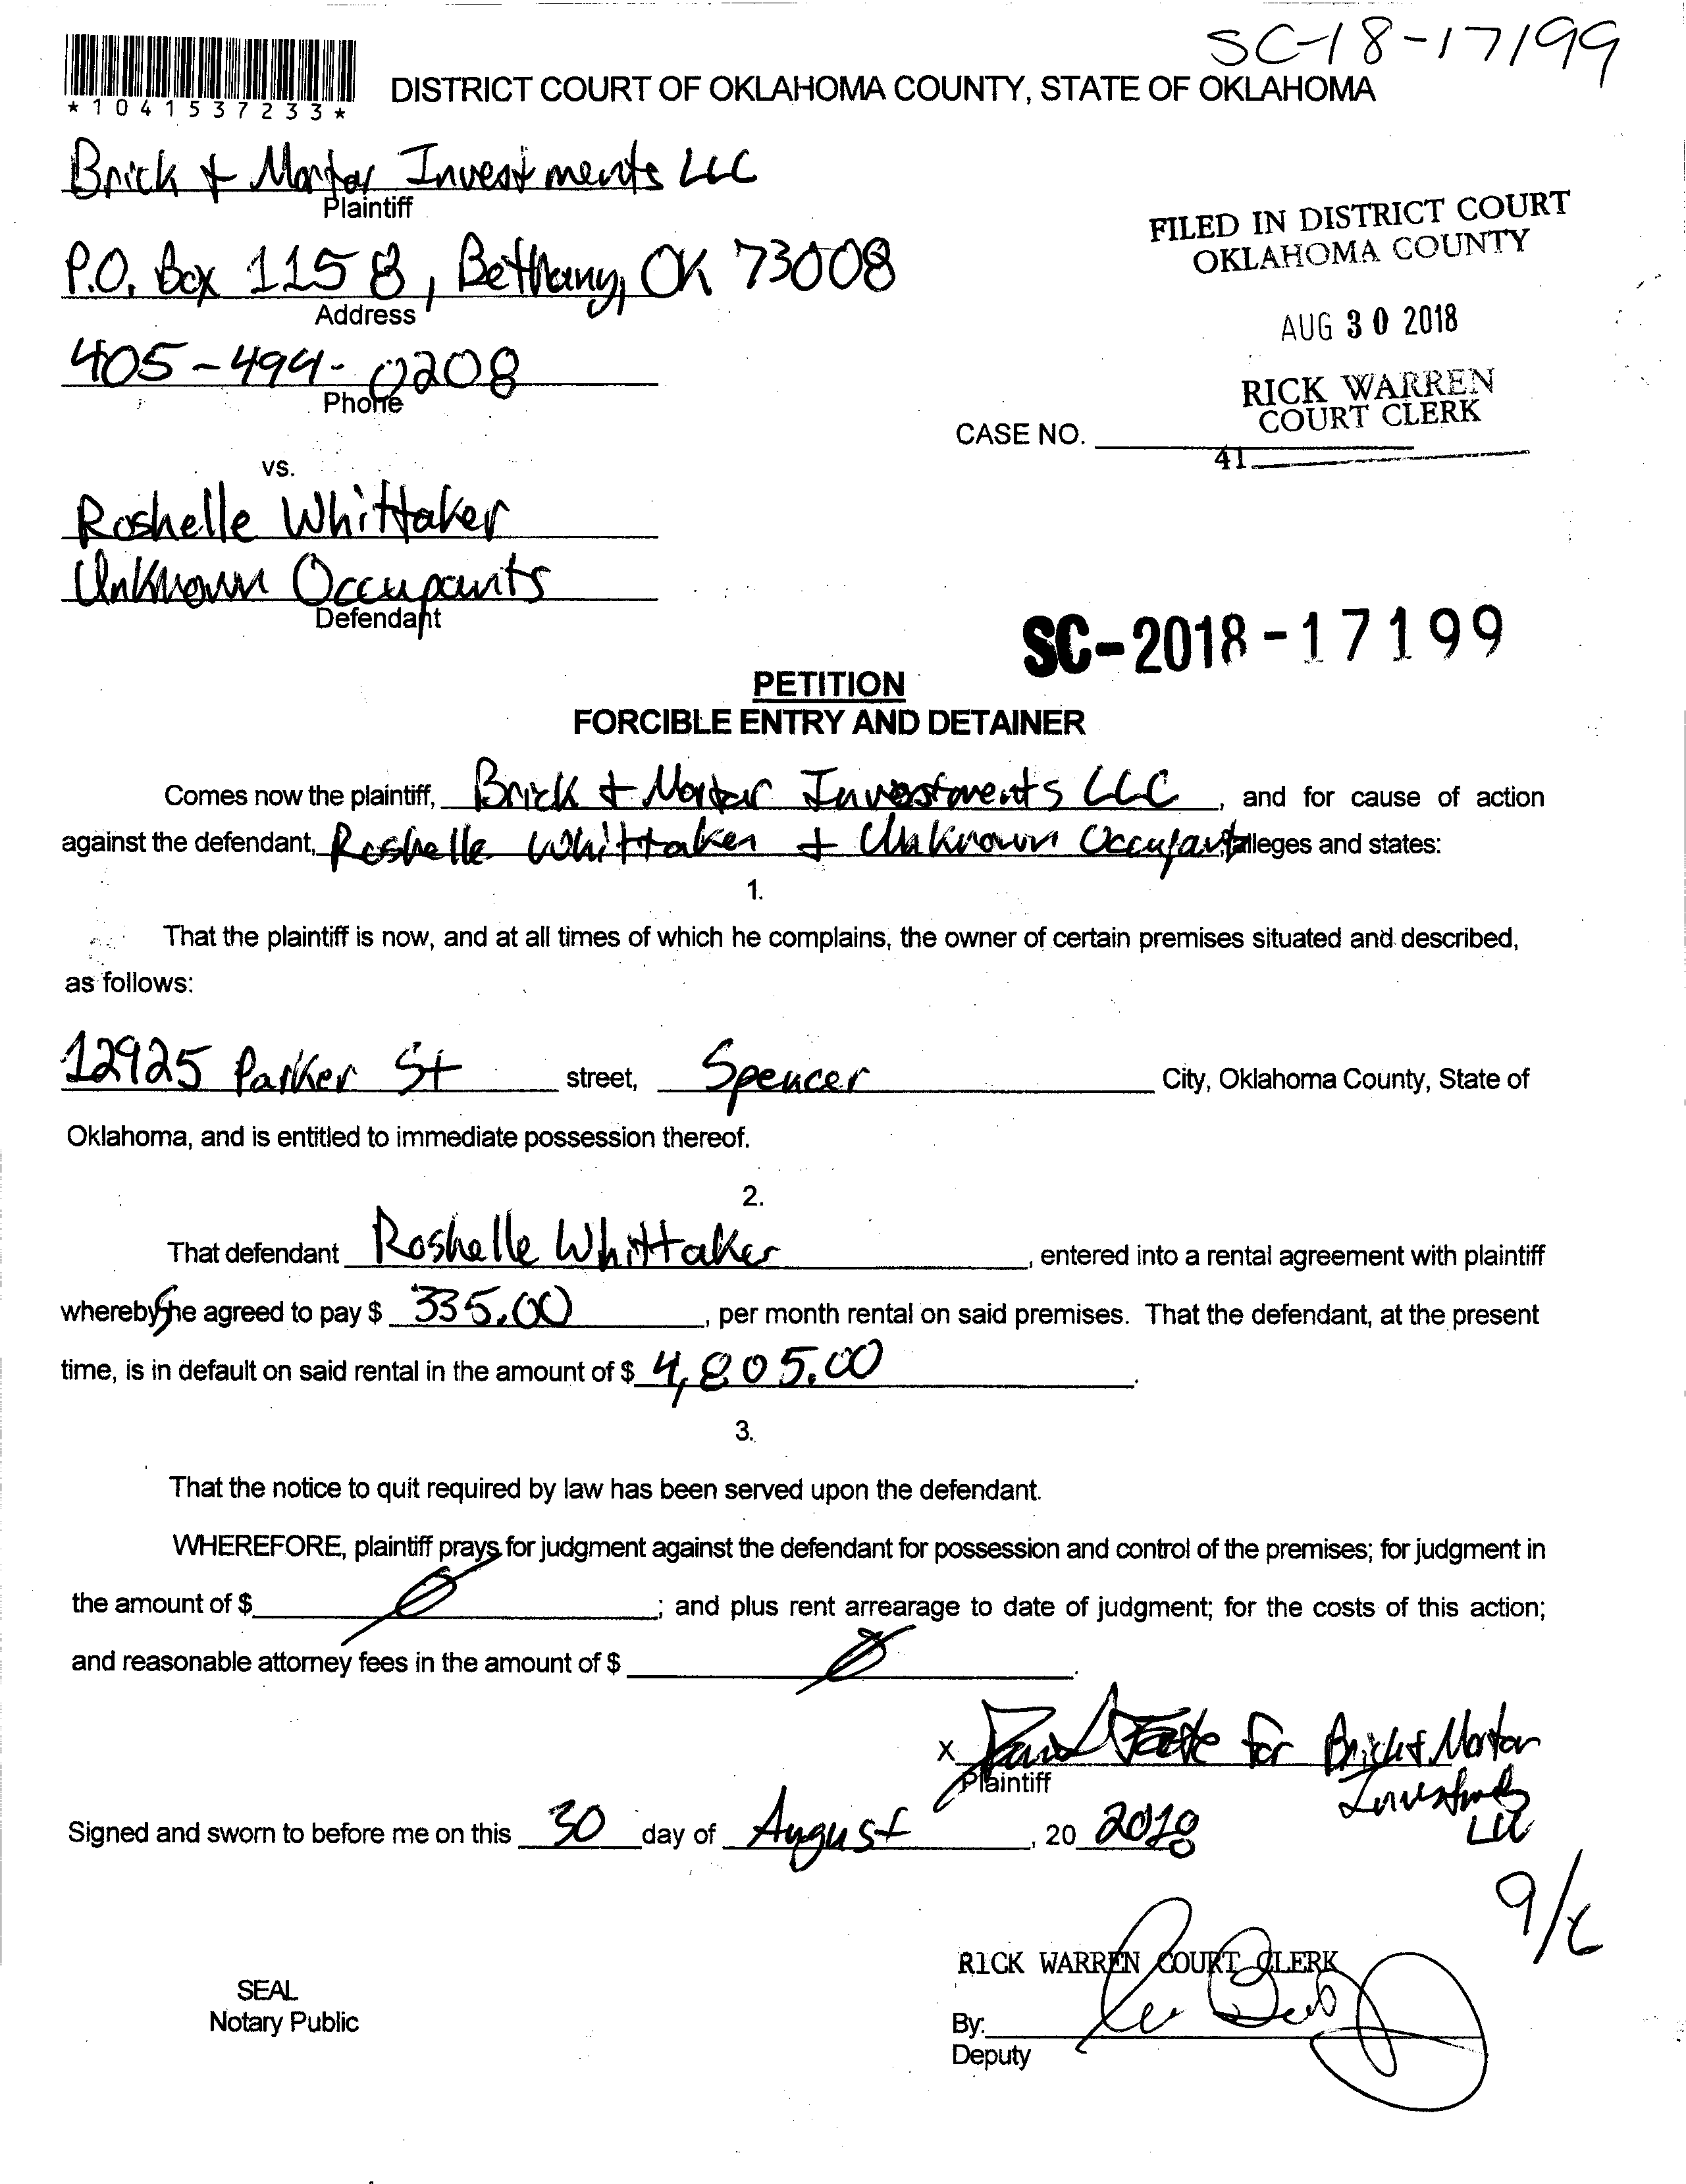 SC-18-17199
*1041537233*
DISTRICT COURT OF OKLAHOMA COUNTY, STATE OF OKLAHOMA
Brick + Mortar Investments LLC
Plaintiff
P.O. Box 1158, Bethany, OK 73008
Address
405-494-0208
Phone
FILED IN DISTRICT COURT
OKLAHOMA COUNTY
AUG 30 2018
RICK WARREN
COURT CLERK
CASE NO.
41
vs.
Roshelle Whittaker
Unknown Occupants
Defendant
SC-2018-17199
PETITION
FORCIBLE ENTRY AND DETAINER
Comes now the plaintiff, Brick + Mortar Investments LLC, and for cause of action
against the defendant, Roshelle Whittaker + Unknown Occupants alleges and states:
1.
That the plaintiff is now, and at all times of which he complains, the owner of certain premises situated and described,
as follows:
12925 Parker St street, Spencer City, Oklahoma County, State of
Oklahoma, and is entitled to immediate possession thereof.
2.
That defendant Roshelle Whittaker, entered into a rental agreement with plaintiff
whereby She agreed to pay $ 335.00, per month rental on said premises. That the defendant, at the present
time, is in default on said rental in the amount of $ 4,805.00.
3.
That the notice to quit required by law has been served upon the defendant.
WHEREFORE, plaintiff prays for judgment against the defendant for possession and control of the premises; for judgment in
the amount of $ 0; and plus rent arrearage to date of judgment; for the costs of this action;
and reasonable attorney fees in the amount of $ 0.
X for Brick & Mortar
Investments
LLC
Plaintiff
Signed and sworn to before me on this 30 day of August, 20 2018
9/6
RICK WARREN COURT CLERK
SEAL
Notary Public
By:
Deputy